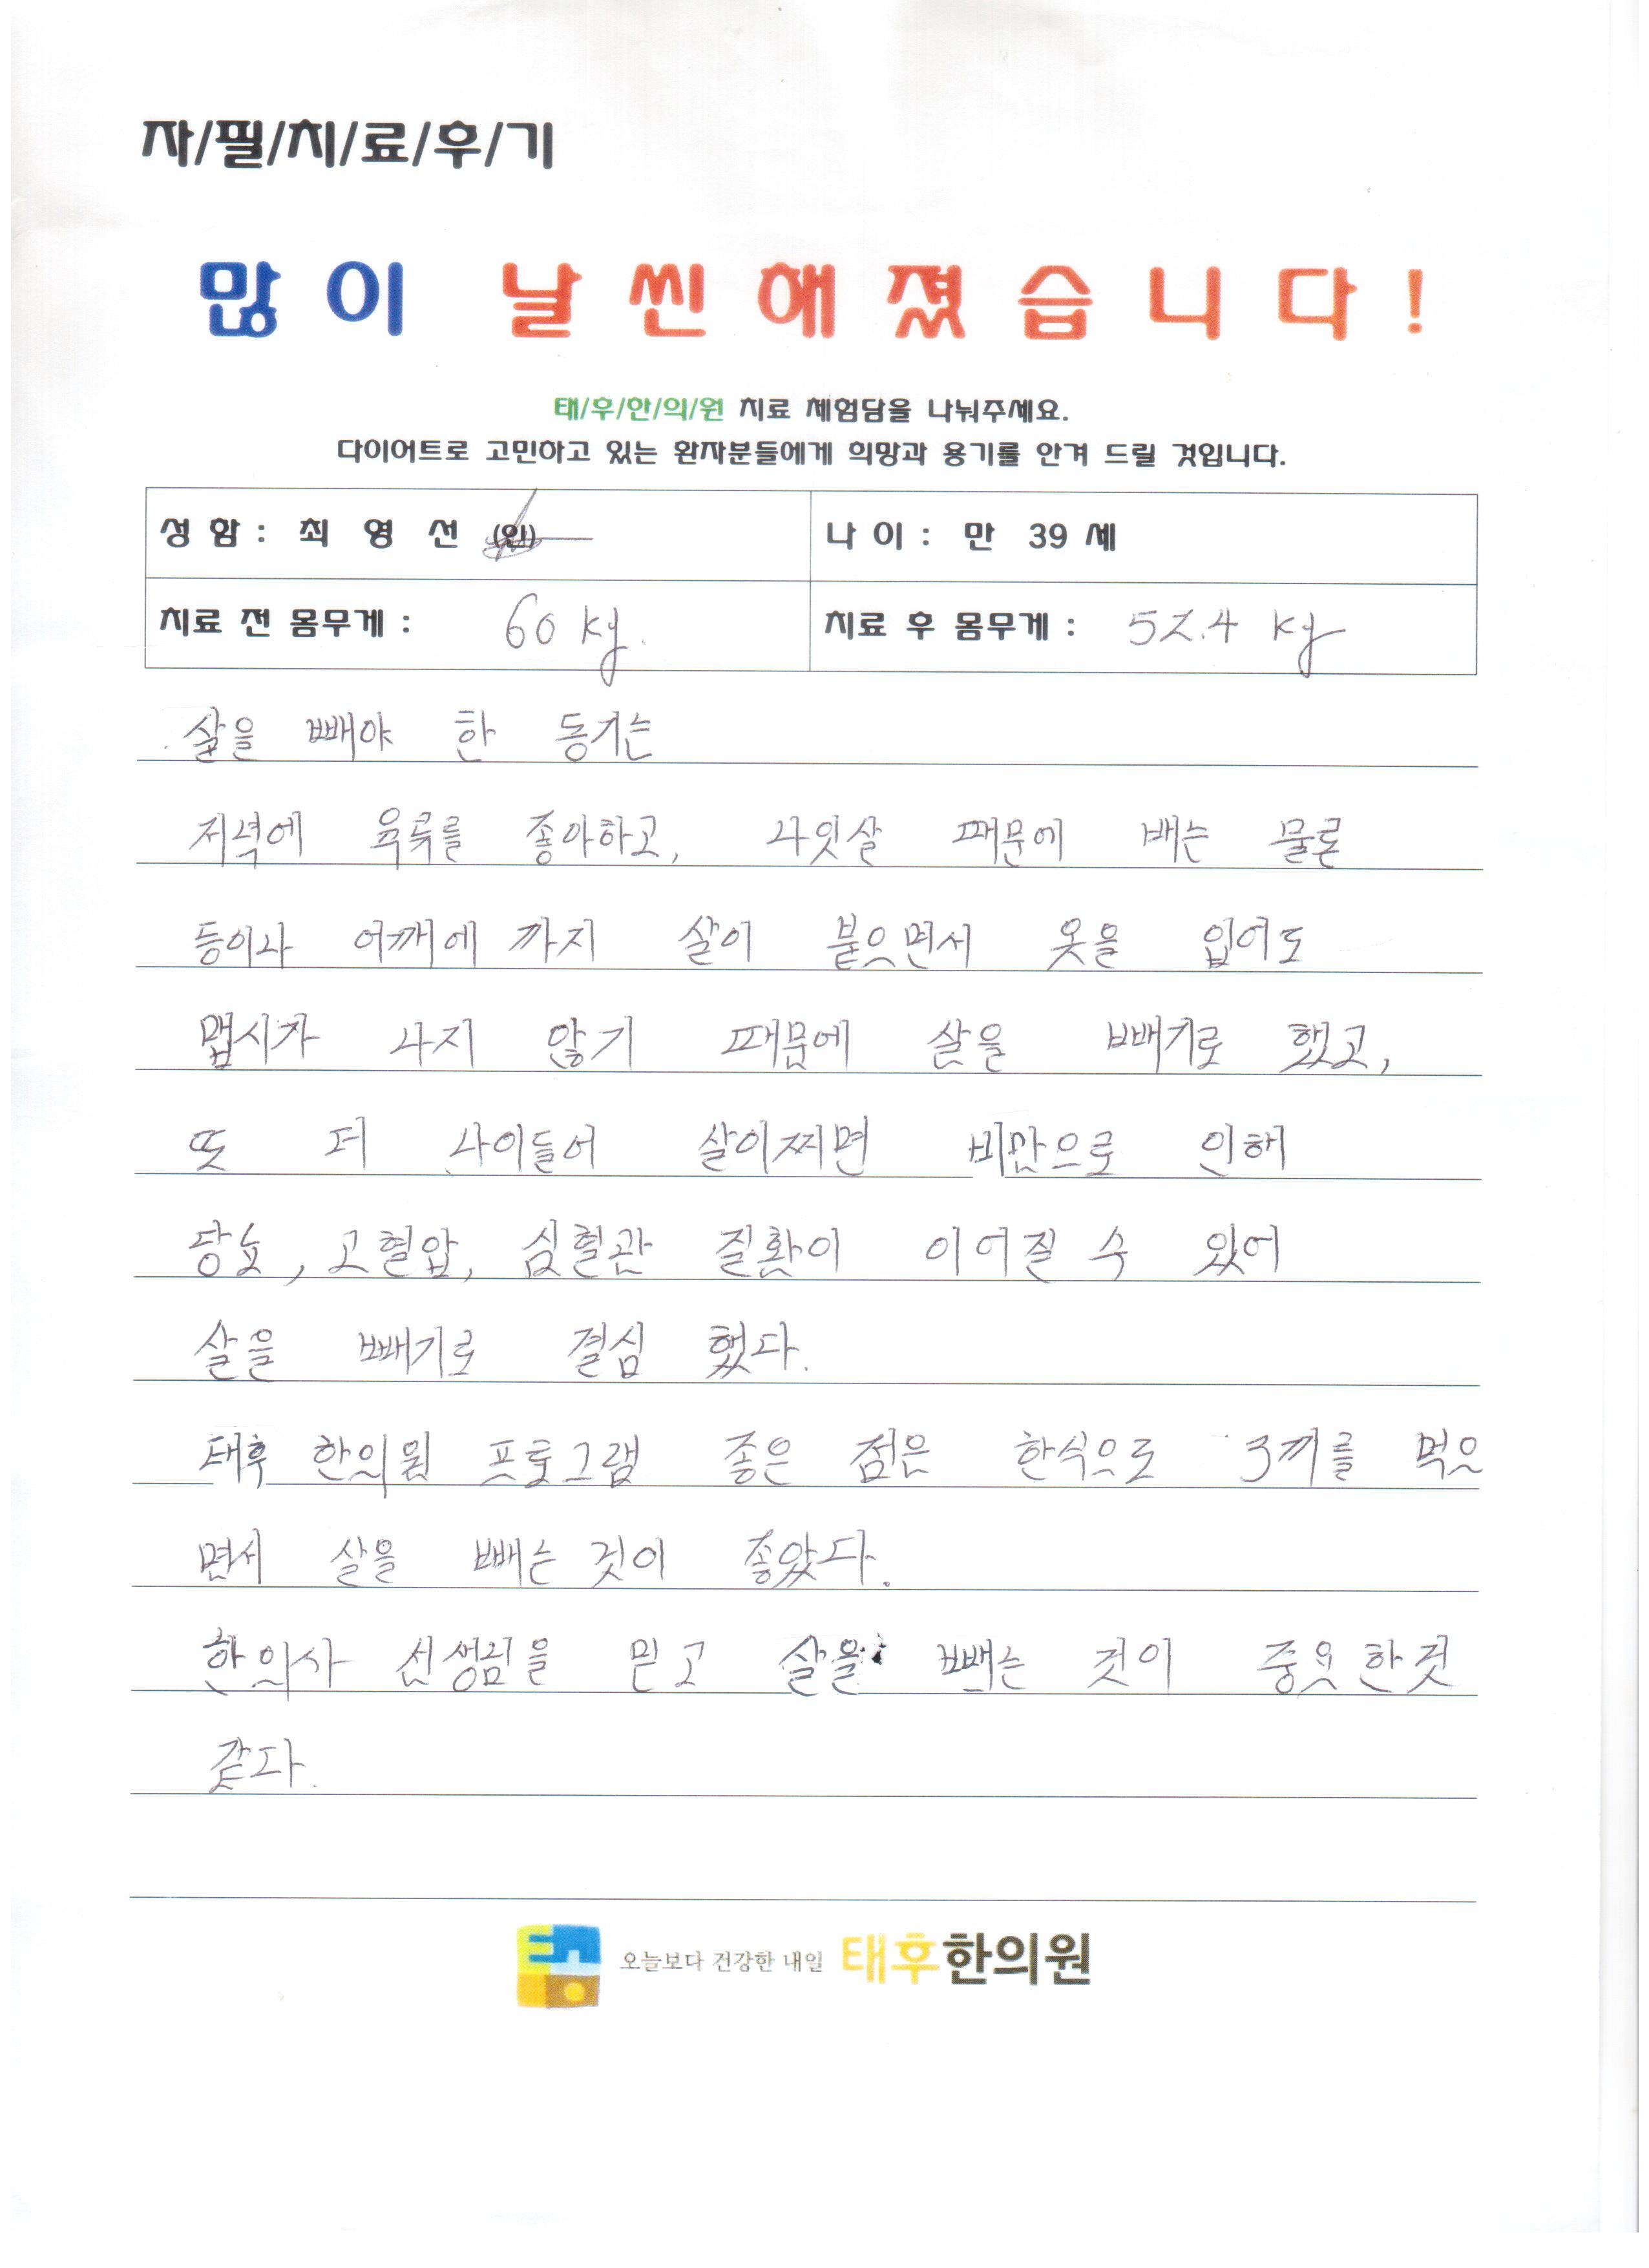 자/필/치/료/후/기
많이 날씬해졌습니다!
태/후/한/의/원 치료 체험담을 나눠주세요.
다이어트로 고민하고 있는 환자분들에게 희망과 용기를 안겨 드릴 것입니다.
성 함 : 최 영 선 (인)
나 이 : 만 39 세
치료 전 몸무게 : 60 kg.
치료 후 몸무게 : 52.4 kg
살을 빼야 한 동기는
저녁에 육류를 좋아하고, 나잇살 때문에 배는 물론
등이나 어깨에 까지 살이 붙으면서 옷을 입어도
맵시가 나지 않기 때문에 살을 빼기로 했고,
또 더 나이들어 살이찌면 비만으로 인해
당뇨, 고혈압, 심혈관 질환이 이어질 수 있어
살을 빼기로 결심 했다.
태후 한의원 프로그램 좋은 점은 한식으로 3끼를 먹으
면서 살을 빼는 것이 좋았다.
한의사 선생님을 믿고 살을 빼는 것이 중요한것
같다.
오늘보다 건강한 내일 태후한의원